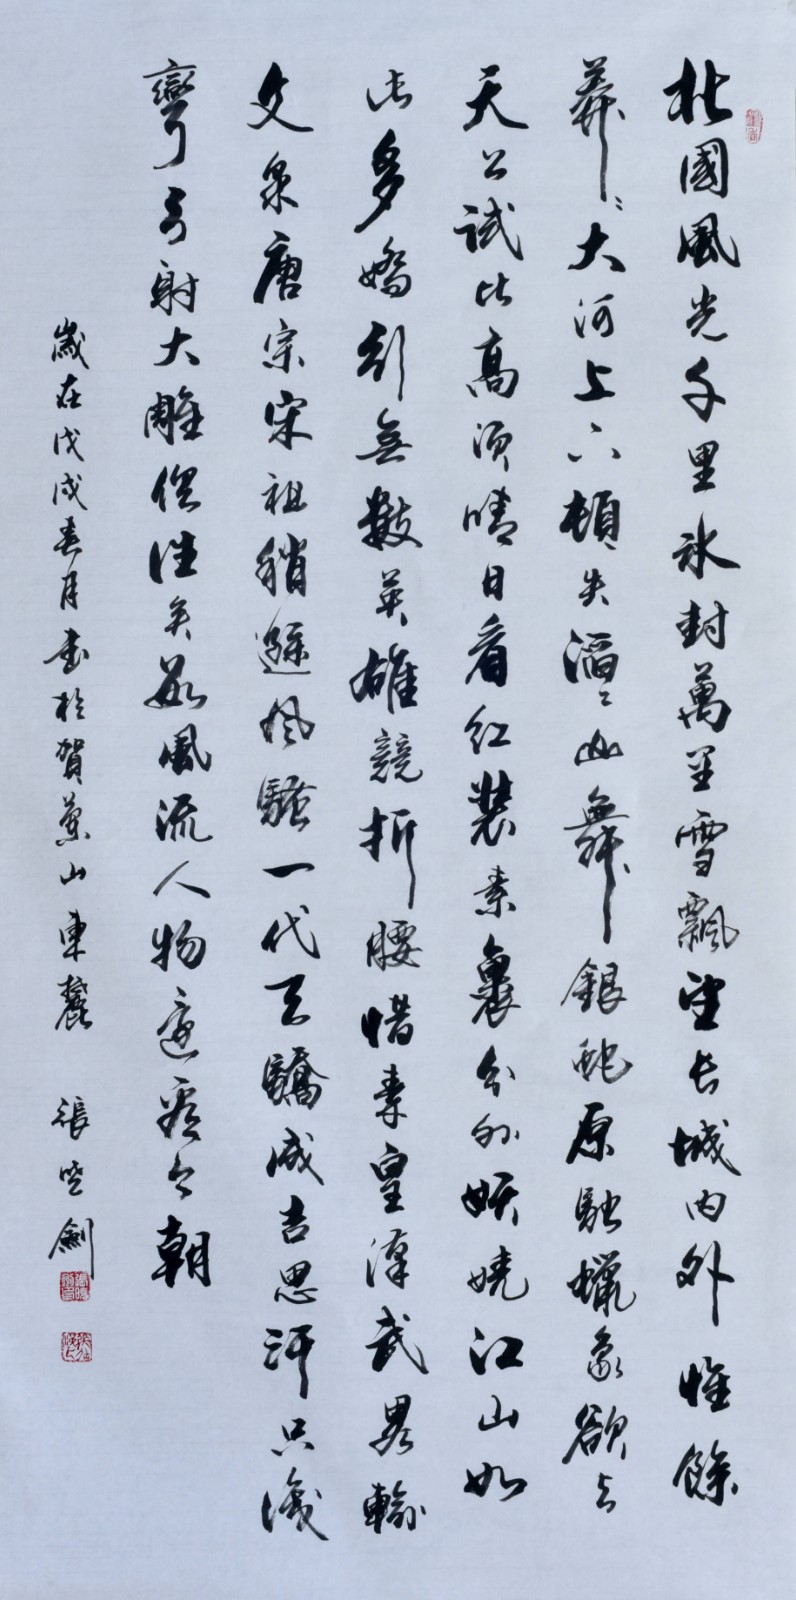 北國風光千里冰封萬里雪飄望长城内外惟餘
莽〻大河上下頓失滔〻山舞銀蛇原馳蠟象欲与
天公試比高须晴日看红装素裹分外妖娆江山如
此多嬌引無數英雄競折腰惜秦皇漢武畧輸
文采唐宗宋祖稍遜风騷一代天驕成吉思汗只識
彎弓射大雕俱往矣數風流人物還看今朝
歲在戊戌春月書於賀蘭山東麓 張劍